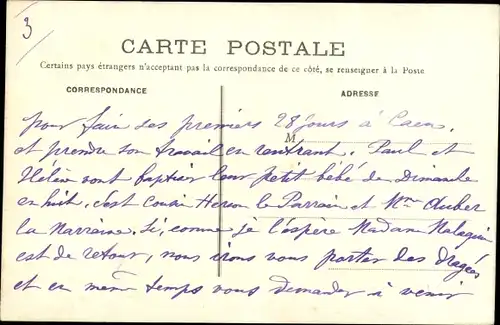 3
CARTE POSTALE
Certains pays étrangers n'acceptant pas la correspondance de ce côté, se renseigner à la Poste
CORRESPONDANCE
ADRESSE
M
pour fair ses premiers 28 jours à Caen,
et prendre son travail en rentrant. Paul et
Hélèn vont baptiser leur petit bébé de Dimanche
en huit, c'est cousin Heron le Parrain et Mme Auber
la Marraine. Si, comme je l'espère Madame Malaquin
est de retour, nous irons vous porter des dragées
et en même temps vous demander à venir